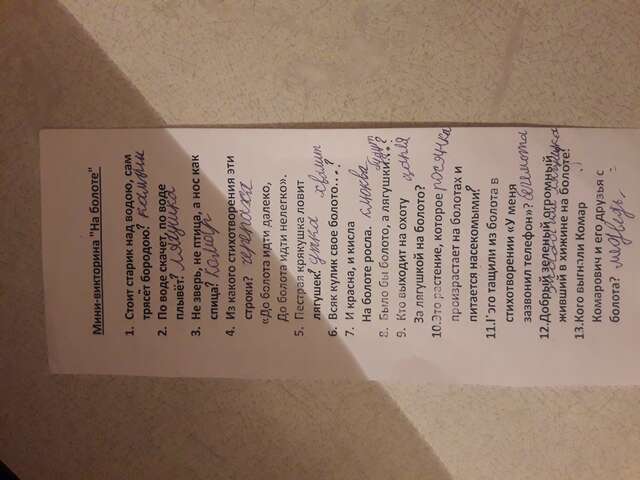 Мини-викторина "На болоте"
1. Стоит старик над водою, сам
трясёт бородою? камыш
2. По воде скачет, по воде
плывёт? лягушка
3. Не зверь, не птица, а нос как
спица? комар
4. Из какого стихотворения эти
строки? черепаха
«До болота идти далеко,
До болота идти нелегко».
5. Пестрая крякушка ловит
лягушек? утка
6. Всяк кулик свое болото…? хвалит
7. И красна, и кисла
На болоте росла. клюква
8. Было бы болото, а лягушки…? будут
9. Кто выходит на охоту
За лягушкой на болото? цапля
10.Это растение, которое росянка
произрастает на болотах и
питается насекомыми?
11.Кого тащили из болота в
стихотворении «У меня
зазвонил телефон»? бегемота
12.Добрый зеленый огромный,
живший в хижине на болоте!
13.Кого выгнали Комар
Комарович и его друзья с
болота? медведь